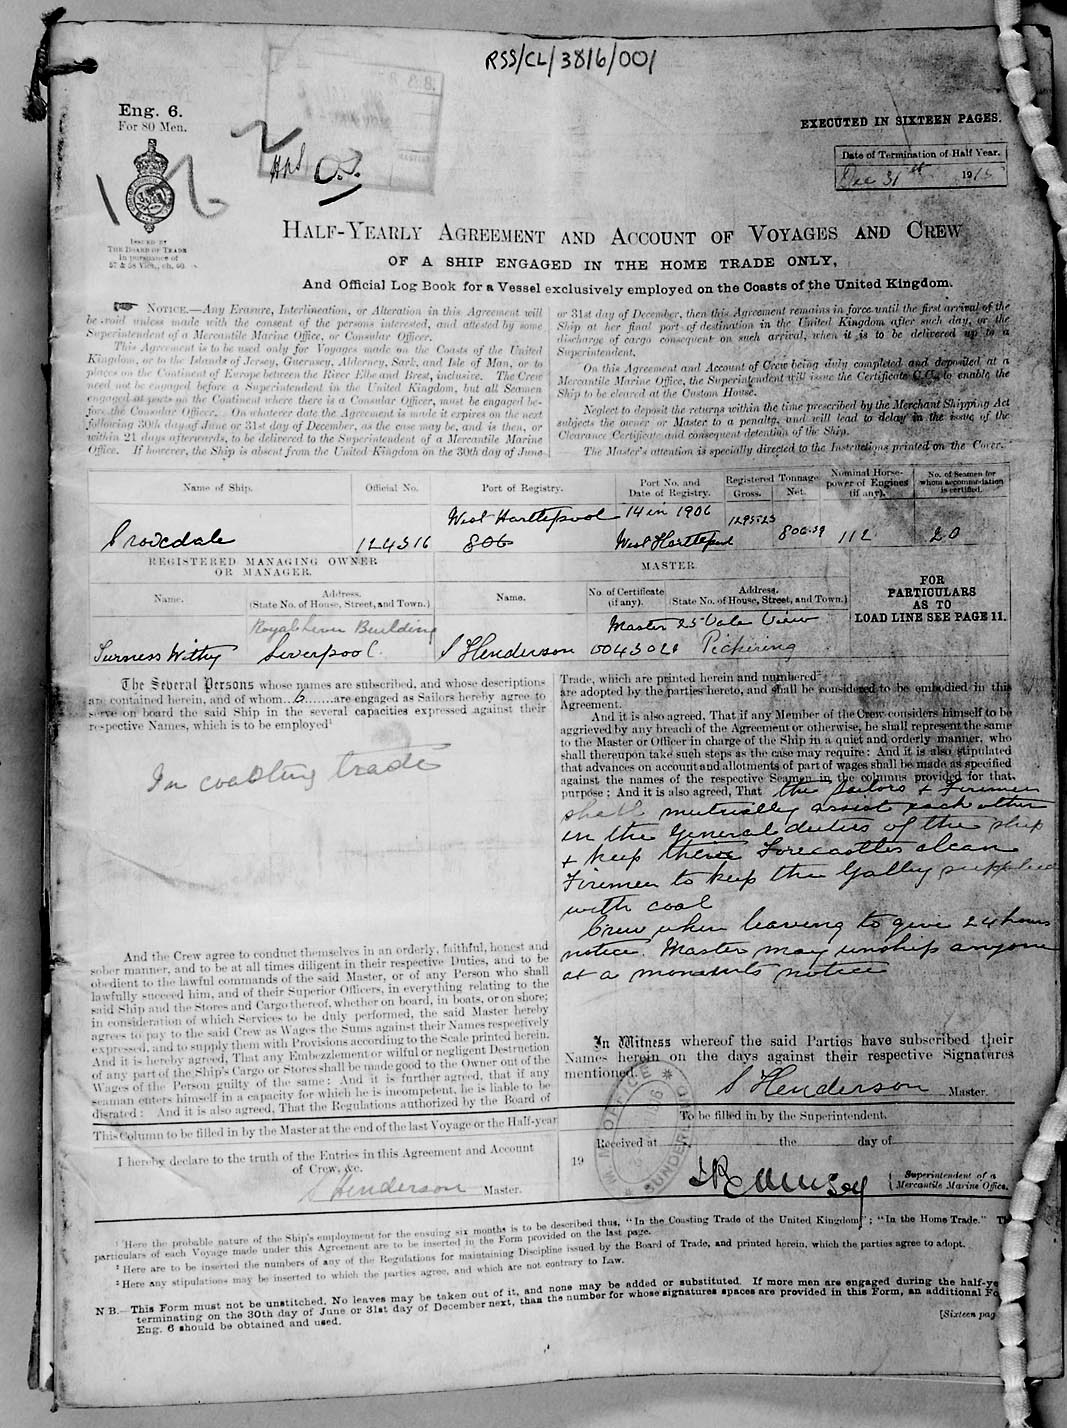 RSS/CL/3816/001
Eng. 6.
For 80 Men.
EXECUTED IN SIXTEEN PAGES.
Date of Termination of Half Year.
Dec 31st 1915
ISSUED BY
THE BOARD OF TRADE
in pursuance of
57 & 58 Vict., ch. 60.
HALF-YEARLY AGREEMENT AND ACCOUNT OF VOYAGES AND CREW
OF A SHIP ENGAGED IN THE HOME TRADE ONLY,
And Official Log Book for a Vessel exclusively employed on the Coasts of the United Kingdom.
NOTICE.—Any Erasure, Interlineation, or Alteration in this Agreement will
be void unless made with the consent of the persons interested, and attested by some
Superintendent of a Mercantile Marine Office, or Consular Officer.
This Agreement is to be used only for Voyages made on the Coasts of the United
Kingdom, or to the Islands of Jersey, Guernsey, Alderney, Sark, and Isle of Man, or to
places on the Continent of Europe between the River Elbe and Brest, inclusive. The Crew
need not be engaged before a Superintendent in the United Kingdom, but all Seamen
engaged at ports on the Continent where there is a Consular Officer, must be engaged be-
fore the Consular Officer. On whatever date the Agreement is made it expires on the next
following 30th day of June or 31st day of December, as the case may be, and is then, or
within 21 days afterwards, to be delivered to the Superintendent of a Mercantile Marine
Office. If however, the Ship is absent from the United Kingdom on the 30th day of June
or 31st day of December, then this Agreement remains in force until the first arrival of the
Ship at her final port of destination in the United Kingdom after such day, or the
discharge of cargo consequent on such arrival, when it is to be delivered up to a
Superintendent.
On this Agreement and Account of Crew being duly completed and deposited at a
Mercantile Marine Office, the Superintendent will issue the Certificate C.C. to enable the
Ship to be cleared at the Custom House.
Neglect to deposit the returns within the time prescribed by the Merchant Shipping Act
subjects the owner or Master to a penalty, and will lead to delay in the issue of the
Clearance Certificate and consequent detention of the Ship.
The Master's attention is specially directed to the Instructions printed on the Cover.
Name of Ship. Official No. Port of Registry. Port No. and Date of Registry. Registered Tonnage Gross. Net. Nominal Horse-power of Engines (if any). No. of Seamen for whom accommodation is certified.
West Hartlepool 14 in 1906
124316 806 West Hartlepool 806.39 112 20
REGISTERED MANAGING OWNER
OR MANAGER.
MASTER
Name. Address. (State No. of House, Street, and Town.) Name. No. of Certificate (if any). Address. (State No. of House, Street, and Town.)
FOR
PARTICULARS
AS TO
LOAD LINE SEE PAGE 11.
Royal Liver Building Master 25 Vale View
Furness Withy Liverpool. S Henderson 0043020 Pickering
The Several Persons whose names are subscribed, and whose descriptions
are contained herein, and of whom 6 are engaged as Sailors hereby agree to
serve on board the said Ship in the several capacities expressed against their
respective Names, which is to be employed¹
In coasting trade
And the Crew agree to conduct themselves in an orderly, faithful, honest and
sober manner, and to be at all times diligent in their respective Duties, and to be
obedient to the lawful commands of the said Master, or of any Person who shall
lawfully succeed him, and of their Superior Officers, in everything relating to the
said Ship and the Stores and Cargo thereof, whether on board, in boats, or on shore;
in consideration of which Services to be duly performed, the said Master hereby
agrees to pay to the said Crew as Wages the Sums against their Names respectively
expressed, and to supply them with Provisions according to the Scale printed herein.
And it is hereby agreed, That any Embezzlement or wilful or negligent Destruction
of any part of the Ship's Cargo or Stores shall be made good to the Owner out of the
Wages of the Person guilty of the same: And it is further agreed, that if any
seaman enters himself in a capacity for which he is incompetent, he is liable to be
disrated: And it is also agreed, That the Regulations authorized by the Board of
Trade, which are printed herein and numbered²
are adopted by the parties hereto, and shall be considered to be embodied in this
Agreement.
And it is also agreed, That if any Member of the Crew considers himself to be
aggrieved by any breach of the Agreement or otherwise, he shall represent the same
to the Master or Officer in charge of the Ship in a quiet and orderly manner, who
shall thereupon take such steps as the case may require: And it is also stipulated
that advances on account and allotments of part of wages shall be made as specified
against the names of the respective Seamen in the columns provided for that
purpose: And it is also agreed, That the Sailors & Firemen
shall mutually assist each other
in the general duties of the ship
& keep their Forecastles clean
Firemen to keep the Galley supplied
with coal
Crew when leaving to give 24 hours
notice. Master may unship anyone
at a moments notice
In Witness whereof the said Parties have subscribed their
Names herein on the days against their respective Signatures
mentioned.
S Henderson Master.
This Column to be filled in by the Master at the end of the last Voyage or the Half-year
I hereby declare to the truth of the Entries in this Agreement and Account
of Crew, &c.
S Henderson Master.
To be filled in by the Superintendent.
Received at the day of
19
Superintendent of a
Mercantile Marine Office.
M. M. OFFICE SUNDERLAND
¹ Here the probable nature of the Ship's employment for the ensuing six months is to be described thus, "In the Coasting Trade of the United Kingdom"; "In the Home Trade." The
particulars of each Voyage made under this Agreement are to be inserted in the Form provided on the last page.
² Here are to be inserted the numbers of any of the Regulations for maintaining Discipline issued by the Board of Trade, and printed herein, which the parties agree to adopt.
³ Here any stipulations may be inserted to which the parties agree, and which are not contrary to Law.
N.B.—This Form must not be unstitched. No leaves may be taken out of it, and none may be added or substituted. If more men are engaged during the half-ye
terminating on the 30th day of June or 31st day of December next, than the number for whose signatures spaces are provided in this Form, an additional Fo
Eng. 6 should be obtained and used.
[Sixteen pag